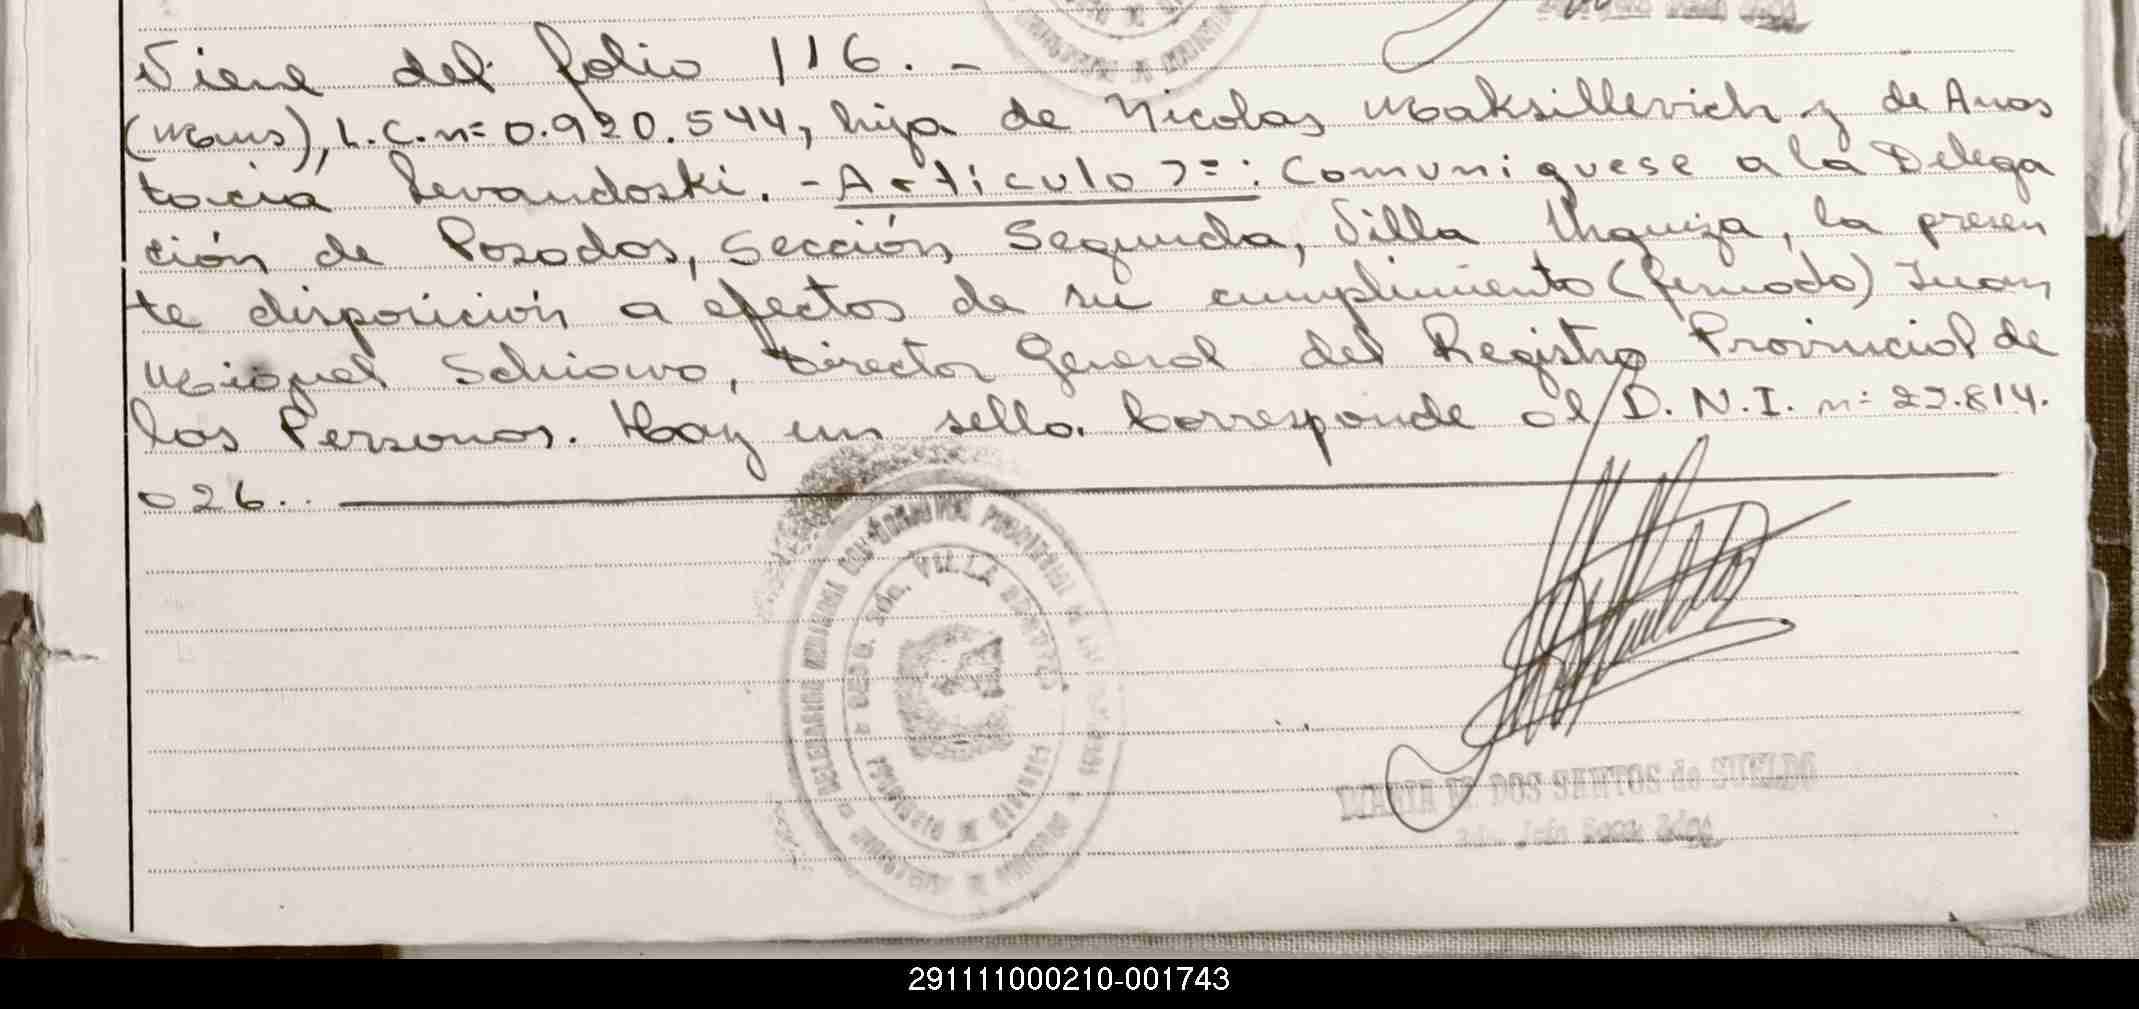 Viene del folio 116. -
(Mnes), L.C. nº 0.920.544, hija de Nicolas Maksillevich y de Anas
tacia Levandoski. - Articulo 2º: Comuniquese a la Delega
ción de Posadas, Sección Segunda, Villa Urquiza, la presen
te disposición a efectos de su cumplimiento (firmado) Juan
Miguel Schiavo, Director General del Registro Provincial de
las Personas. Hay un sello. Corresponde al D.N.I. nº 22.814.
026..
VILLA
MARIA DOS SANTOS de
291111000210-001743